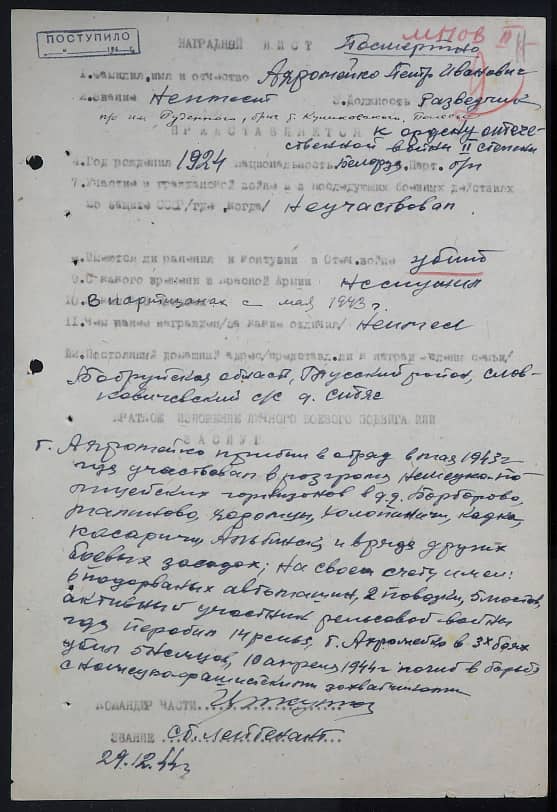 ПОСТУПИЛО
НАГРАДНОЙ ЛИСТ Посмертно
1. Фамилия, имя и отчество Ахрамейко Петр Иванович
2. Звание Неимеет 3. Должность Разведчик
ПРЕДСТАВЛЯЕТСЯ к ордену отече-
ственной войны II степени
4. Год рождения 1924 национальность Белорус Парт. б/п
7. Участие в гражданской войне и в последующих боевых действиях
по защите СССР/где, когда/ Неучаствовал
8. Имеются ли ранения и контузии в Отеч. войне убит
9. С какого времени в Красной Армии Неслужил
10. В партизанах с мая 1943 г.
11. Чем ранее награжден/за какие отличия/ Неимеет
12. Постоянный домашний адрес/представл. ли к наград. адрес семьи/
Бобруйская область, Глусский район, Слов-
ковический с/с д. Ситяс
КРАТКОЕ ИЗЛОЖЕНИЕ ЛИЧНОГО БОЕВОГО ПОДВИГА ИЛИ
ЗАСЛУГ
прибыл в отряд в мая 1943 г
где участвовал в розгроме Немецко-по-
лицейских гарнизонов в д.д. Борборово,
Холопиничи, Кодка,
Косаричи, Альбинск, и в ряде других
боевых засадох; На своем счету имеет:
6 подорваных автомашин, 2 поводки, 5 мостов,
активный участник рельсовой войны
где перебил 14 рельс, т. Ахрамейко в 3х боях
убил 5 немцев, 10 апреля 1944 г погиб в борьбе
с Немецко-фашискими захватчиками
КОМАНДИР ЧАСТИ
ЗВАНИЕ Ст. лейтенант
29.12.44 г